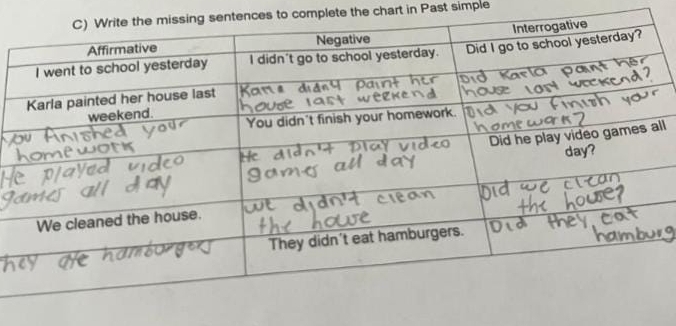 C) Write the missing sentences to complete the chart in Past simple
Affirmative
Negative
Interrogative
I went to school yesterday
I didn't go to school yesterday.
Did I go to school yesterday?
Karla painted her house last
weekend.
Karla didn4 paint her
house last weekend
Did Karla paint her
house last weekend?
You finished your
homework
You didn't finish your homework.
Did you finish your
homework?
He played video
games all day
He didn't play video
games all day
Did he play video games all
day?
We cleaned the house.
we didn't clean
the house
Did we clean
the house?
They ate hamburgers
They didn't eat hamburgers.
Did they eat
hamburg